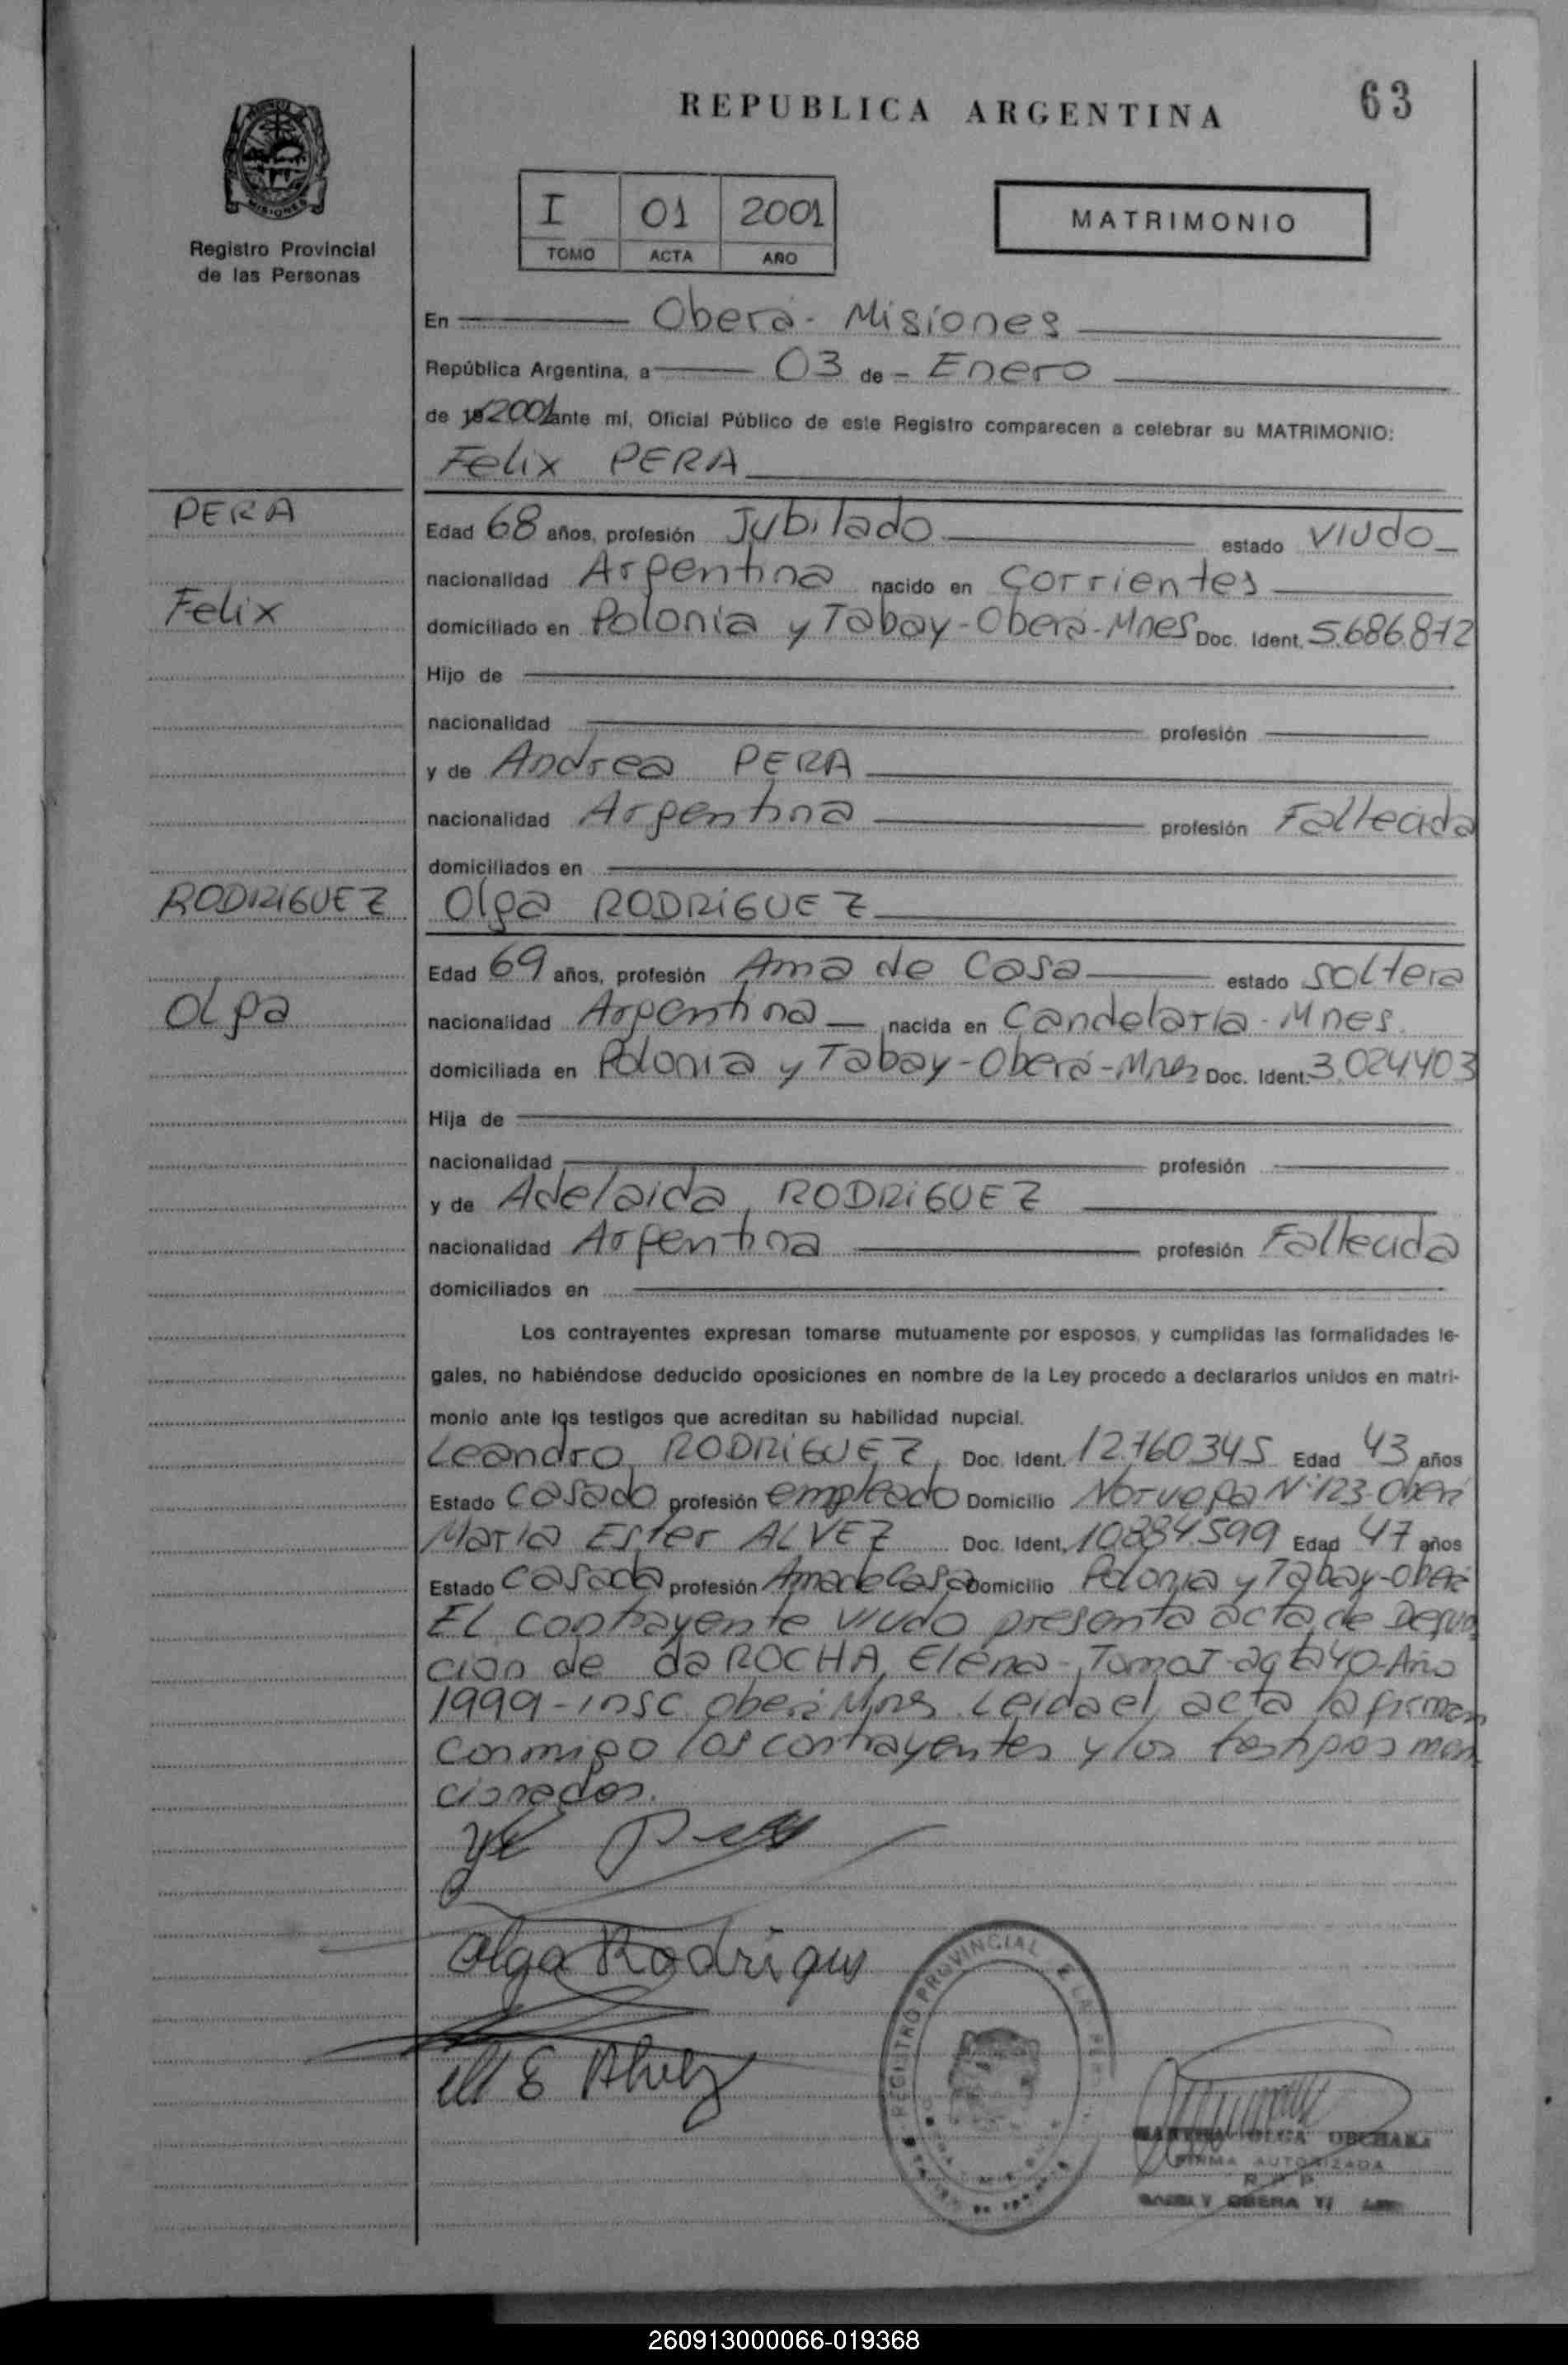 REPUBLICA ARGENTINA
63
MISIONES
Registro Provincial
de las Personas
I 01 2001
TOMO ACTA AÑO
MATRIMONIO
En Oberá - Misiones
República Argentina, a 03 de - Enero
de 19 2001 ante mí, Oficial Público de este Registro comparecen a celebrar su MATRIMONIO:
Felix PERA
PERA
Edad 68 años, profesión Jubilado estado viudo
nacionalidad Argentina nacido en Corrientes
Felix
domiciliado en Polonia y Tabay - Oberá - Mnes Doc. Ident. 5.686.872
Hijo de
nacionalidad profesión
y de Andrea PERA
nacionalidad Argentina profesión Fallecida
domiciliados en
RODRIGUEZ
Olga RODRIGUEZ
Edad 69 años, profesión Ama de Casa estado soltera
Olga
nacionalidad Argentina nacida en Candelaria - Mnes.
domiciliada en Polonia y Tabay - Oberá - Mnes Doc. Ident. 3.024403
Hija de
nacionalidad profesión
y de Adelaida RODRIGUEZ
nacionalidad Argentina profesión Fallecida
domiciliados en
Los contrayentes expresan tomarse mutuamente por esposos, y cumplidas las formalidades le-
gales, no habiéndose deducido oposiciones en nombre de la Ley procedo a declararlos unidos en matri-
monio ante los testigos que acreditan su habilidad nupcial.
Leandro RODRIGUEZ Doc. Ident. 12.760.345 Edad 43 años
Estado casado profesión empleado Domicilio Noruega Nº 123 - Oberá
Maria Ester ALVEZ Doc. Ident. 10.884.599 Edad 47 años
Estado casada profesión Ama de Casa Domicilio Polonia y Tabay - Oberá
El contrayente viudo presenta acta de Defun
cion de da ROCHA, Elena - Tomo I - acta 40 - Año
1999 - insc Oberá Mnes. Leida el acta la firman
conmigo los contrayentes y los testigos men
cionados.
Olga Rodrigues
M E Alvez
REGISTRO PROVINCIAL DE LAS PER
OLGA
FIRMA AUTORIZADA
R P P
OBERA
260913000066-019368